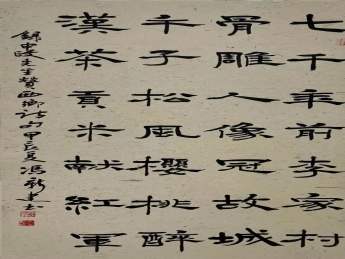 七千年前李家村
骨雕人像冠故城
千子松風櫻桃醉
漢茶貢米献紅軍
錄中
先生贊西鄉詩
甲辰夏馮新